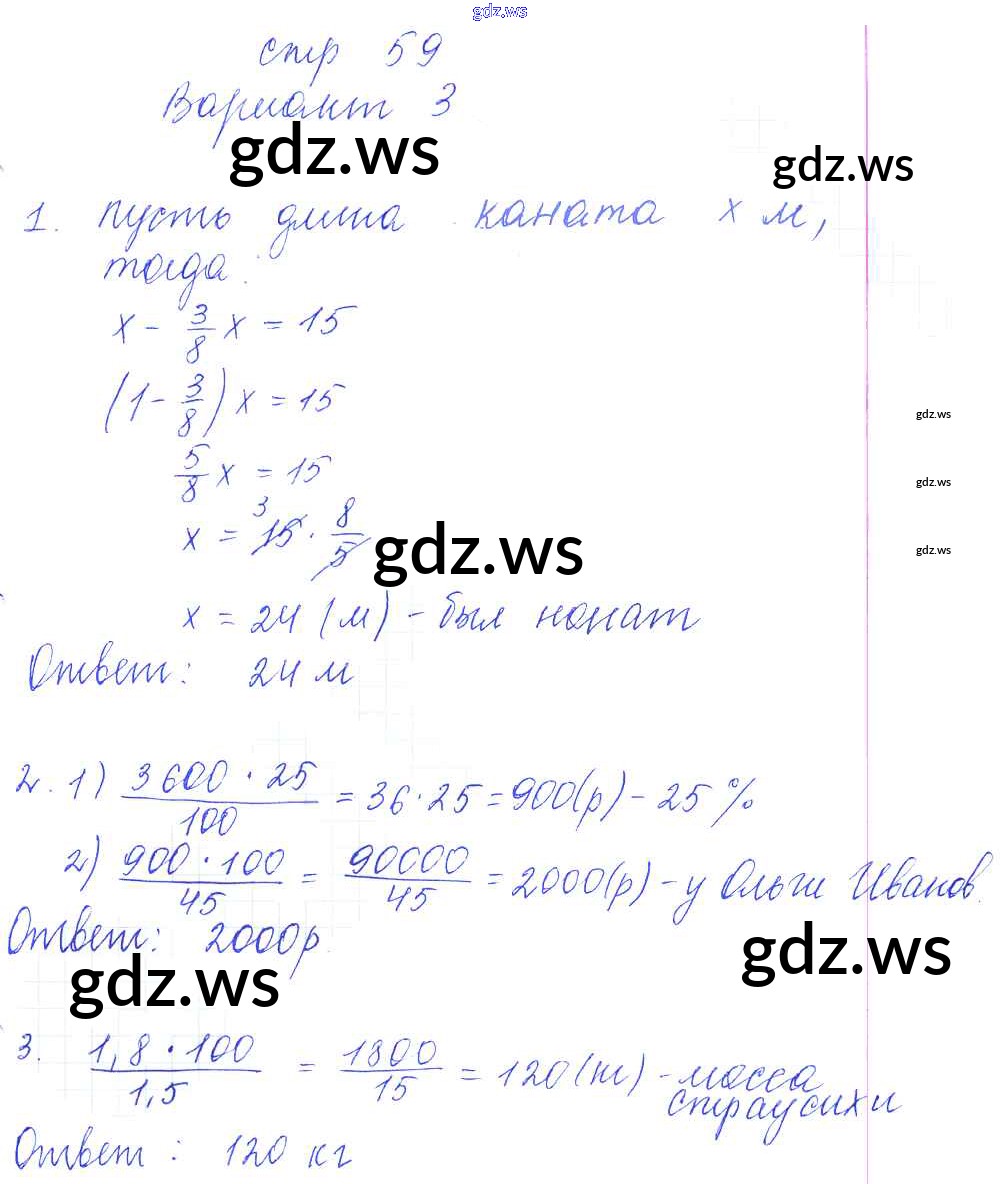 gdz.ws
стр 59
Вариант 3
gdz.ws
gdz.ws
1. Пусть длина каната x м,
тогда:
x - 3/8 x = 15
(1 - 3/8) x = 15
gdz.ws
5/8 x = 15
gdz.ws
x = 15 3 · 8/5
gdz.ws
gdz.ws
x = 24 (м) - был нонат
Ответ: 24 м
2. 1) 3600 · 25 / 100 = 36 · 25 = 900 (р) - 25 %
2) 900 · 100 / 45 = 90000 / 45 = 2000 (р) - у Ольги Иванов.
Ответ: 2000 р.
gdz.ws
gdz.ws
3. 1,8 · 100 / 1,5 = 1800 / 15 = 120 (кг) - масса
страусихи
Ответ: 120 кг